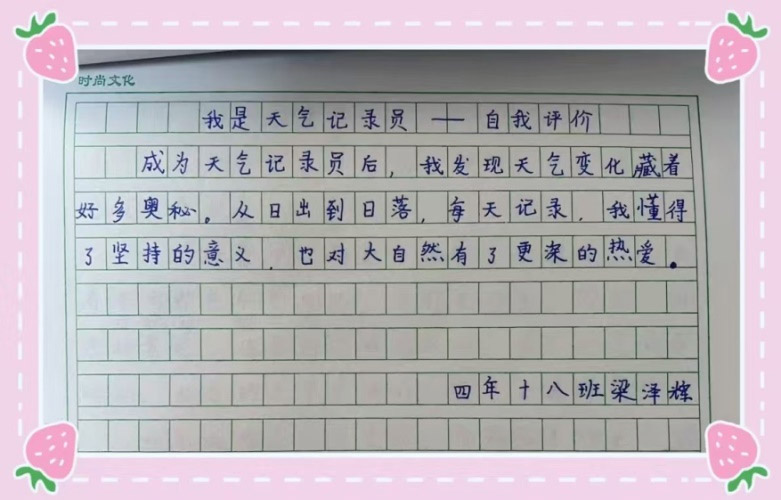 时尚文化
我是天气记录员——自我评价
成为天气记录员后，我发现天气变化藏着
好多奥秘。从日出到日落，每天记录，我懂得
了坚持的意义，也对大自然有了更深的热爱。
四年十八班梁泽辉